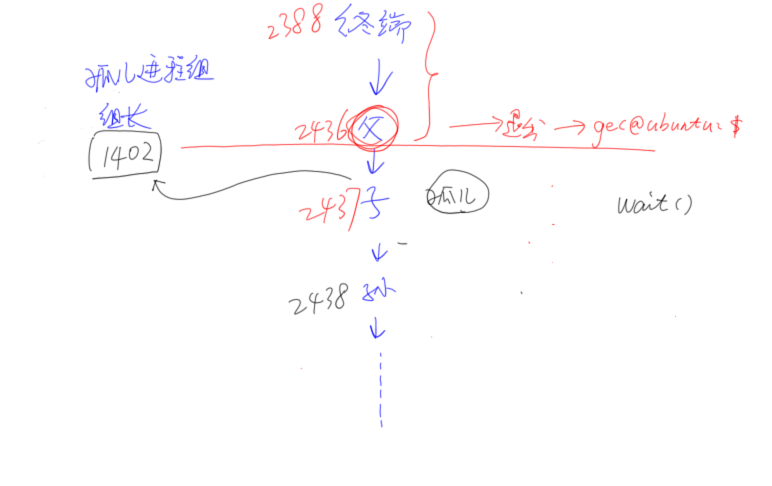 2388 终端
孤儿进程组
组长
1402
2436 父
退出 → gec@ubuntu:$
2437 子
孤儿
wait()
2438 孙